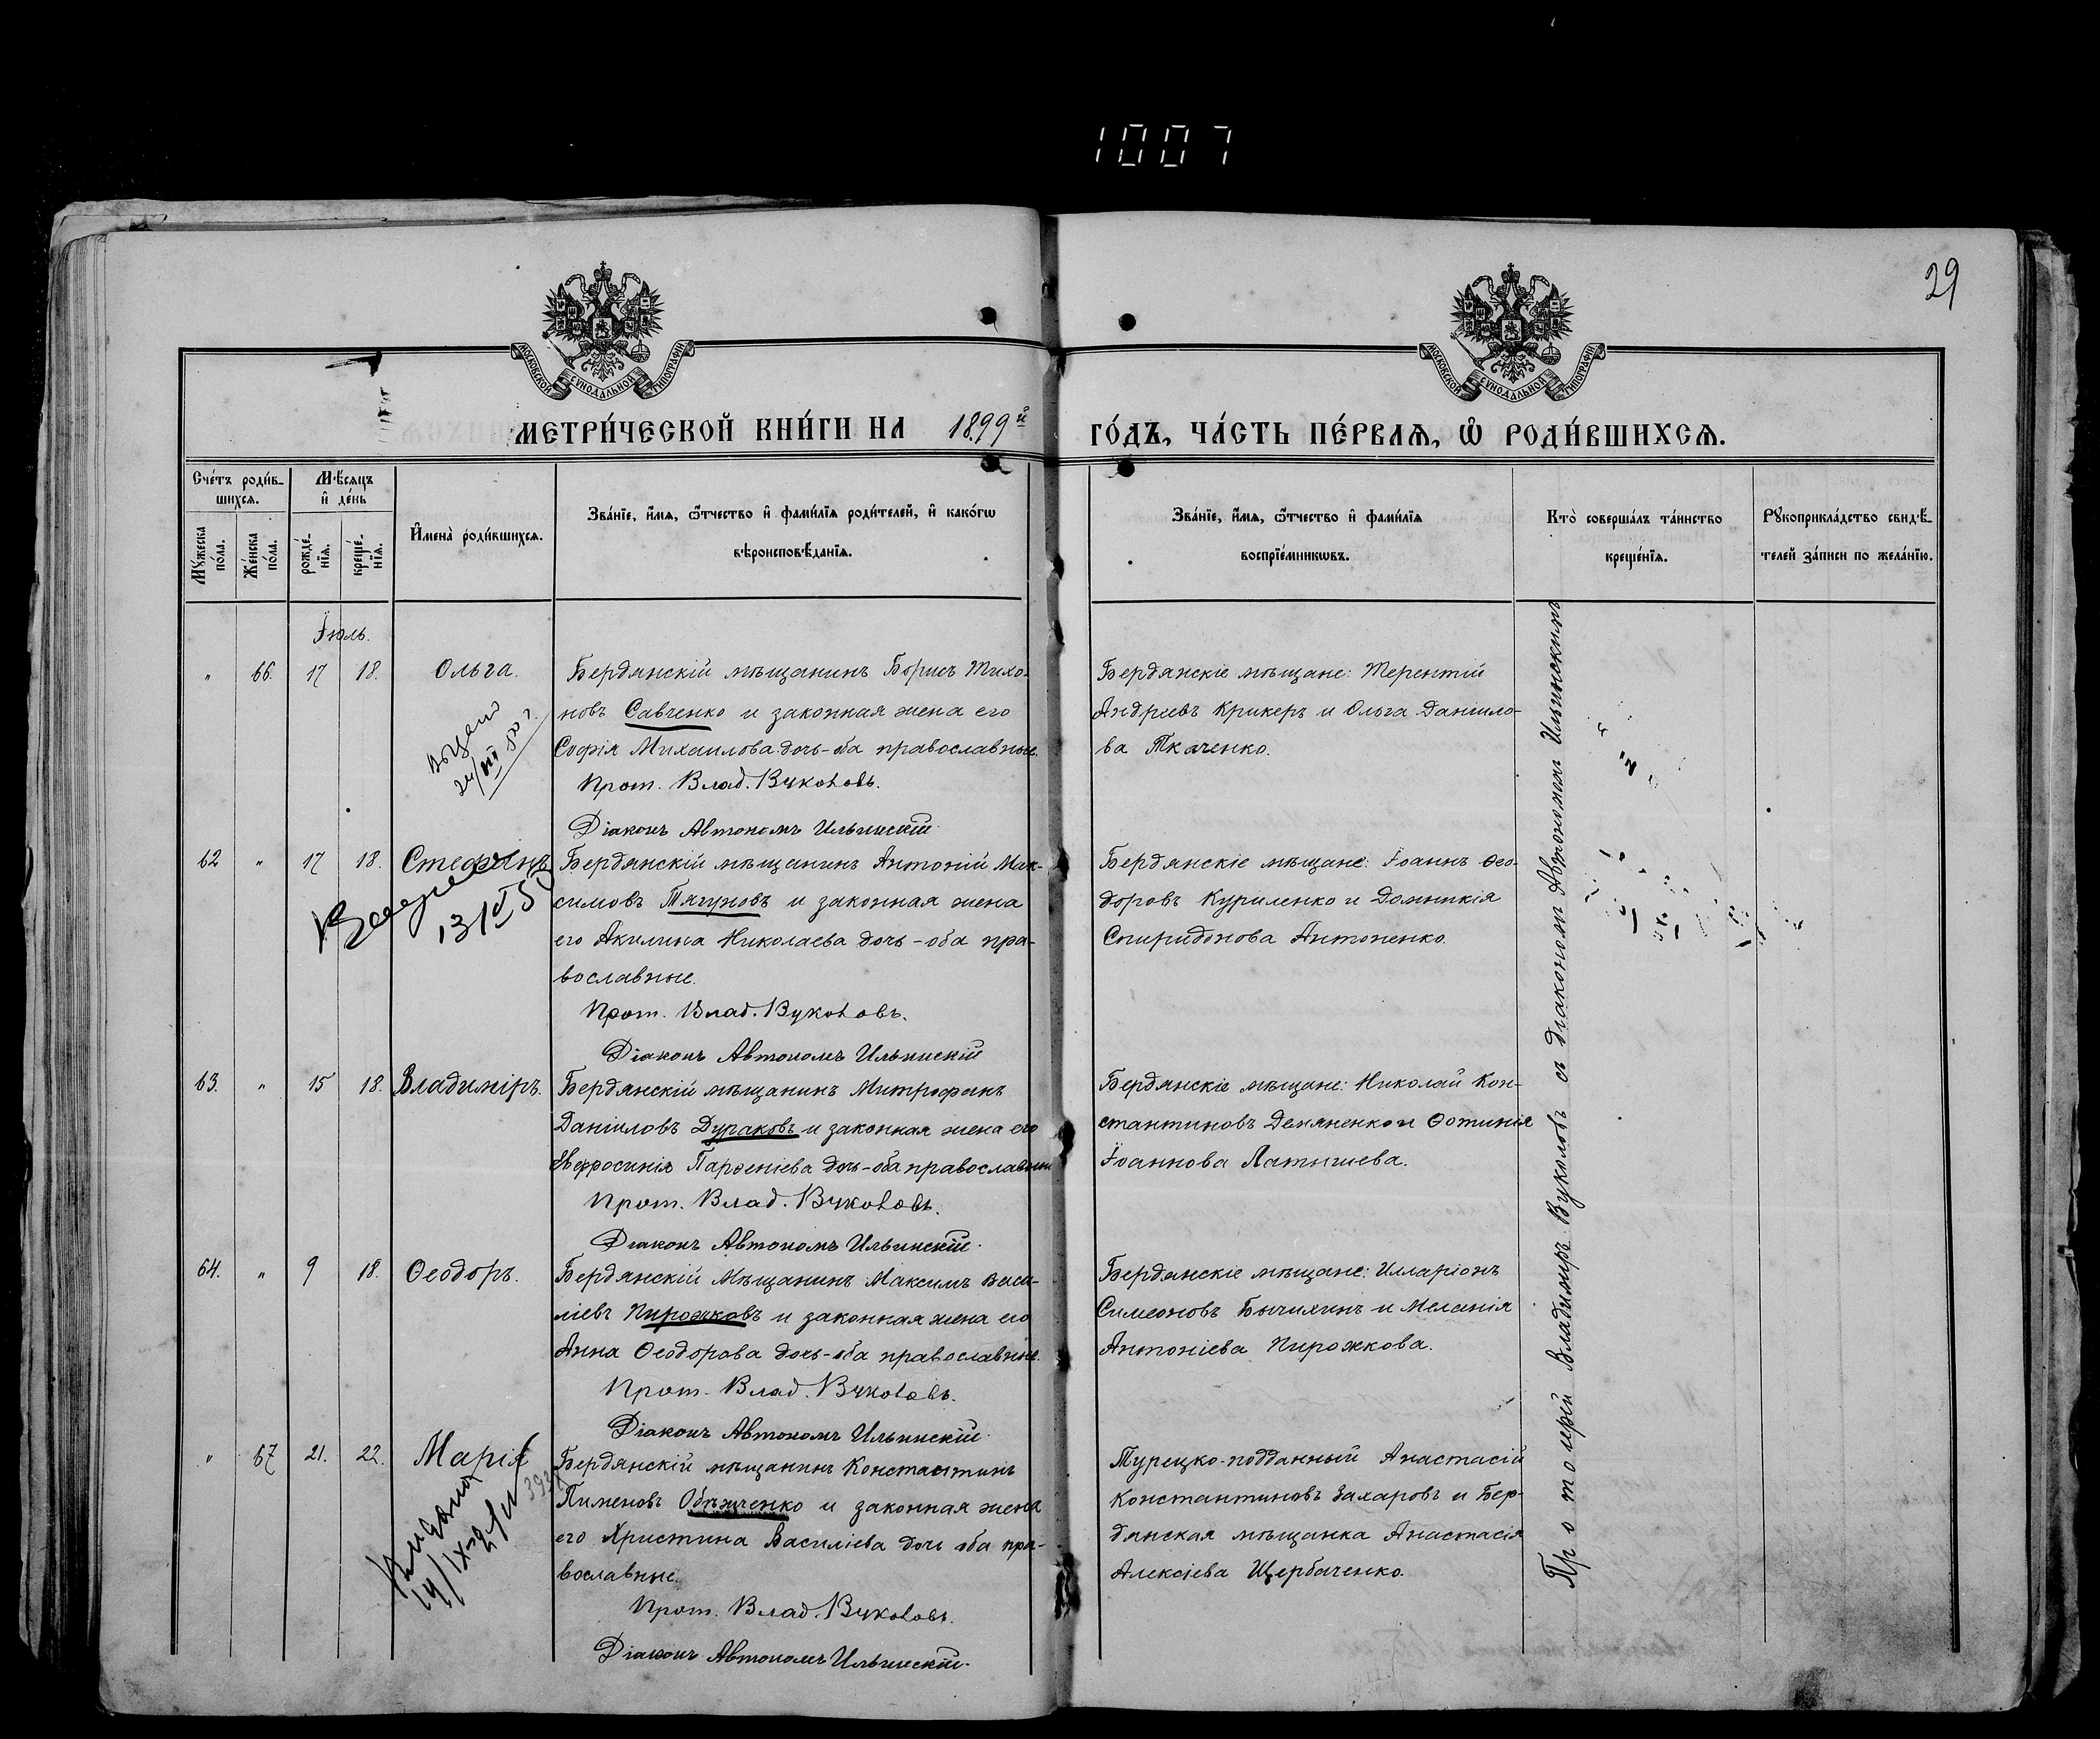 1007
29
МОСКОВСКОЙ СУНОДАЛЬНОЙ ТИПОГРАФІИ
МОСКОВСКОЙ СУНОДАЛЬНОЙ ТИПОГРАФІИ
МЕТРИ́ЧЕСКОЙ КНИ́ГИ НА 1899й ГО́ДЪ, ЧА́СТЬ ПЕ́РВАѦ, Ѽ РОДИ́ВШИХСѦ.
Сче́тъ роди́в-
шихсѧ.
Мꙋжеска по́ла.
Же́нска по́ла.
Мѣ́сѧцъ
и҆ де́нь
рожде́-
нїѧ.
креще́-
нїѧ.
И҆мена̀ роди́вшихсѧ.
Зва́нїе, и҆́мѧ, ѻ҆́тчество и҆ фами́лїѧ роди́телей, и҆ како́гѡ
вѣроисповѣ́данїѧ.
Зва́нїе, и҆́мѧ, ѻ҆́тчество и҆ фами́лїѧ
воспрїе́мникѡвъ.
Кто̀ соверша́лъ та́инство
креще́нїѧ.
Рꙋкоприкла́дство свидѣ́-
телей за́писи по жела́нїю.
Іюль.
" 66. 17 18. Ольга.
Бердянскій мѣщанинъ Борисъ Тихо-
новъ Савченко и законная жена его
Софія Михаилова дочь - оба православные.
Прот. Влад. Вуколовъ.
Діаконъ Автономъ Ильинскій.
Бердянскіе мѣщане: Терентій
Андреевъ Крикеръ и Ольга Данило-
ва Ткаченко.
62 " 17 18. Стефанъ
13/VI 5
Бердянскій мѣщанинъ Антоній Мак-
симовъ Тягуновъ и законная жена
его Акилина Николаева дочь - оба пра-
вославные.
Прот. Влад. Вуколовъ.
Діаконъ Автономъ Ильинскій
Бердянскіе мѣщане: Іоаннъ Ѳео-
доровъ Куриленко и Домникія
Спиридонова Антоненко.
63. " 15 18. Владиміръ.
Бердянскій мѣщанинъ Митрофанъ
Даніиловъ Дураковъ и законная жена его
Евфросинія Парѳеніева дочь - оба православные
Прот. Влад. Вуколовъ.
Діаконъ Автономъ Ильинскій.
Бердянскіе мѣщане: Николай Кон-
стантиновъ Демяненко и Фотинія
Іоаннова Латышева.
64. " 9 18. Ѳеодоръ.
Бердянскій Мѣщанинъ Максимъ Васи-
ліевъ Пирожковъ и законная жена его
Анна Ѳеодорова дочь - оба православные.
Прот. Влад. Вуколовъ.
Діаконъ Автономъ Ильинскій.
Бердянскіе мѣщане: Илларіонъ
Симеоновъ Бычихинъ и Меланія
Антоніева Пирожкова.
" 67 21. 22. Марія
Бердянскій мѣщанинъ Константинъ
Пименовъ Обѣженко и законная жена
его Христина Василіева дочь оба пра-
вославные.
Прот. Влад. Вуколовъ.
Діаконъ Автономъ Ильинскій.
Турецко-подданный Анастасій
Константиновъ Захаровъ и Бер-
дянская мѣщанка Анастасія
Алексіева Щербаченко.
Протоіерей Владимиръ Вуколовъ съ діакономъ Автономомъ Ильинскимъ